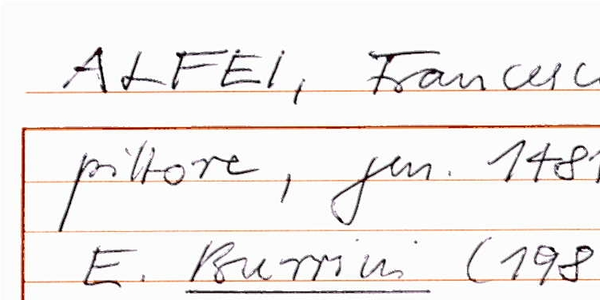 ALFEI, Francesc
pittore, gen. 1481
E. Burrini (198